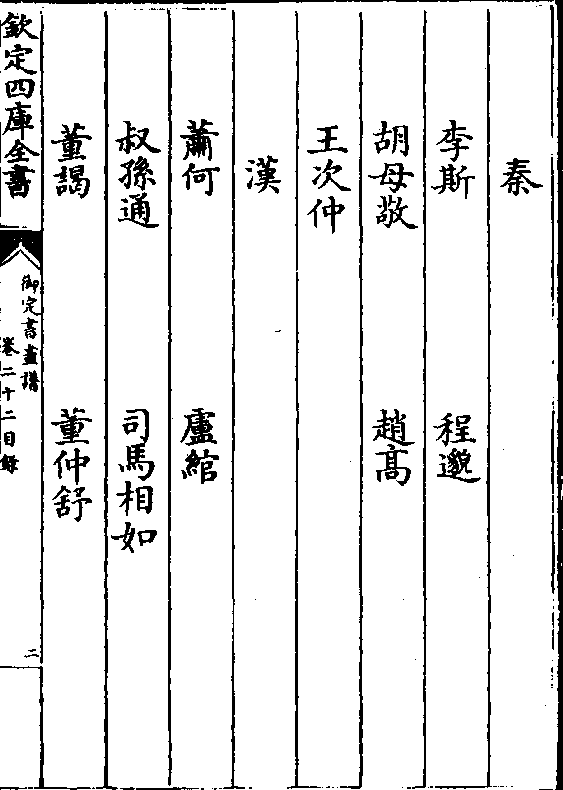 秦
李斯 程邈
胡母敬 趙高
王次仲
漢
蕭何 盧綰
叔孫通 司馬相如
董謁 董仲舒
欽定四庫全書
御定書畫譜
卷二十二目錄
二